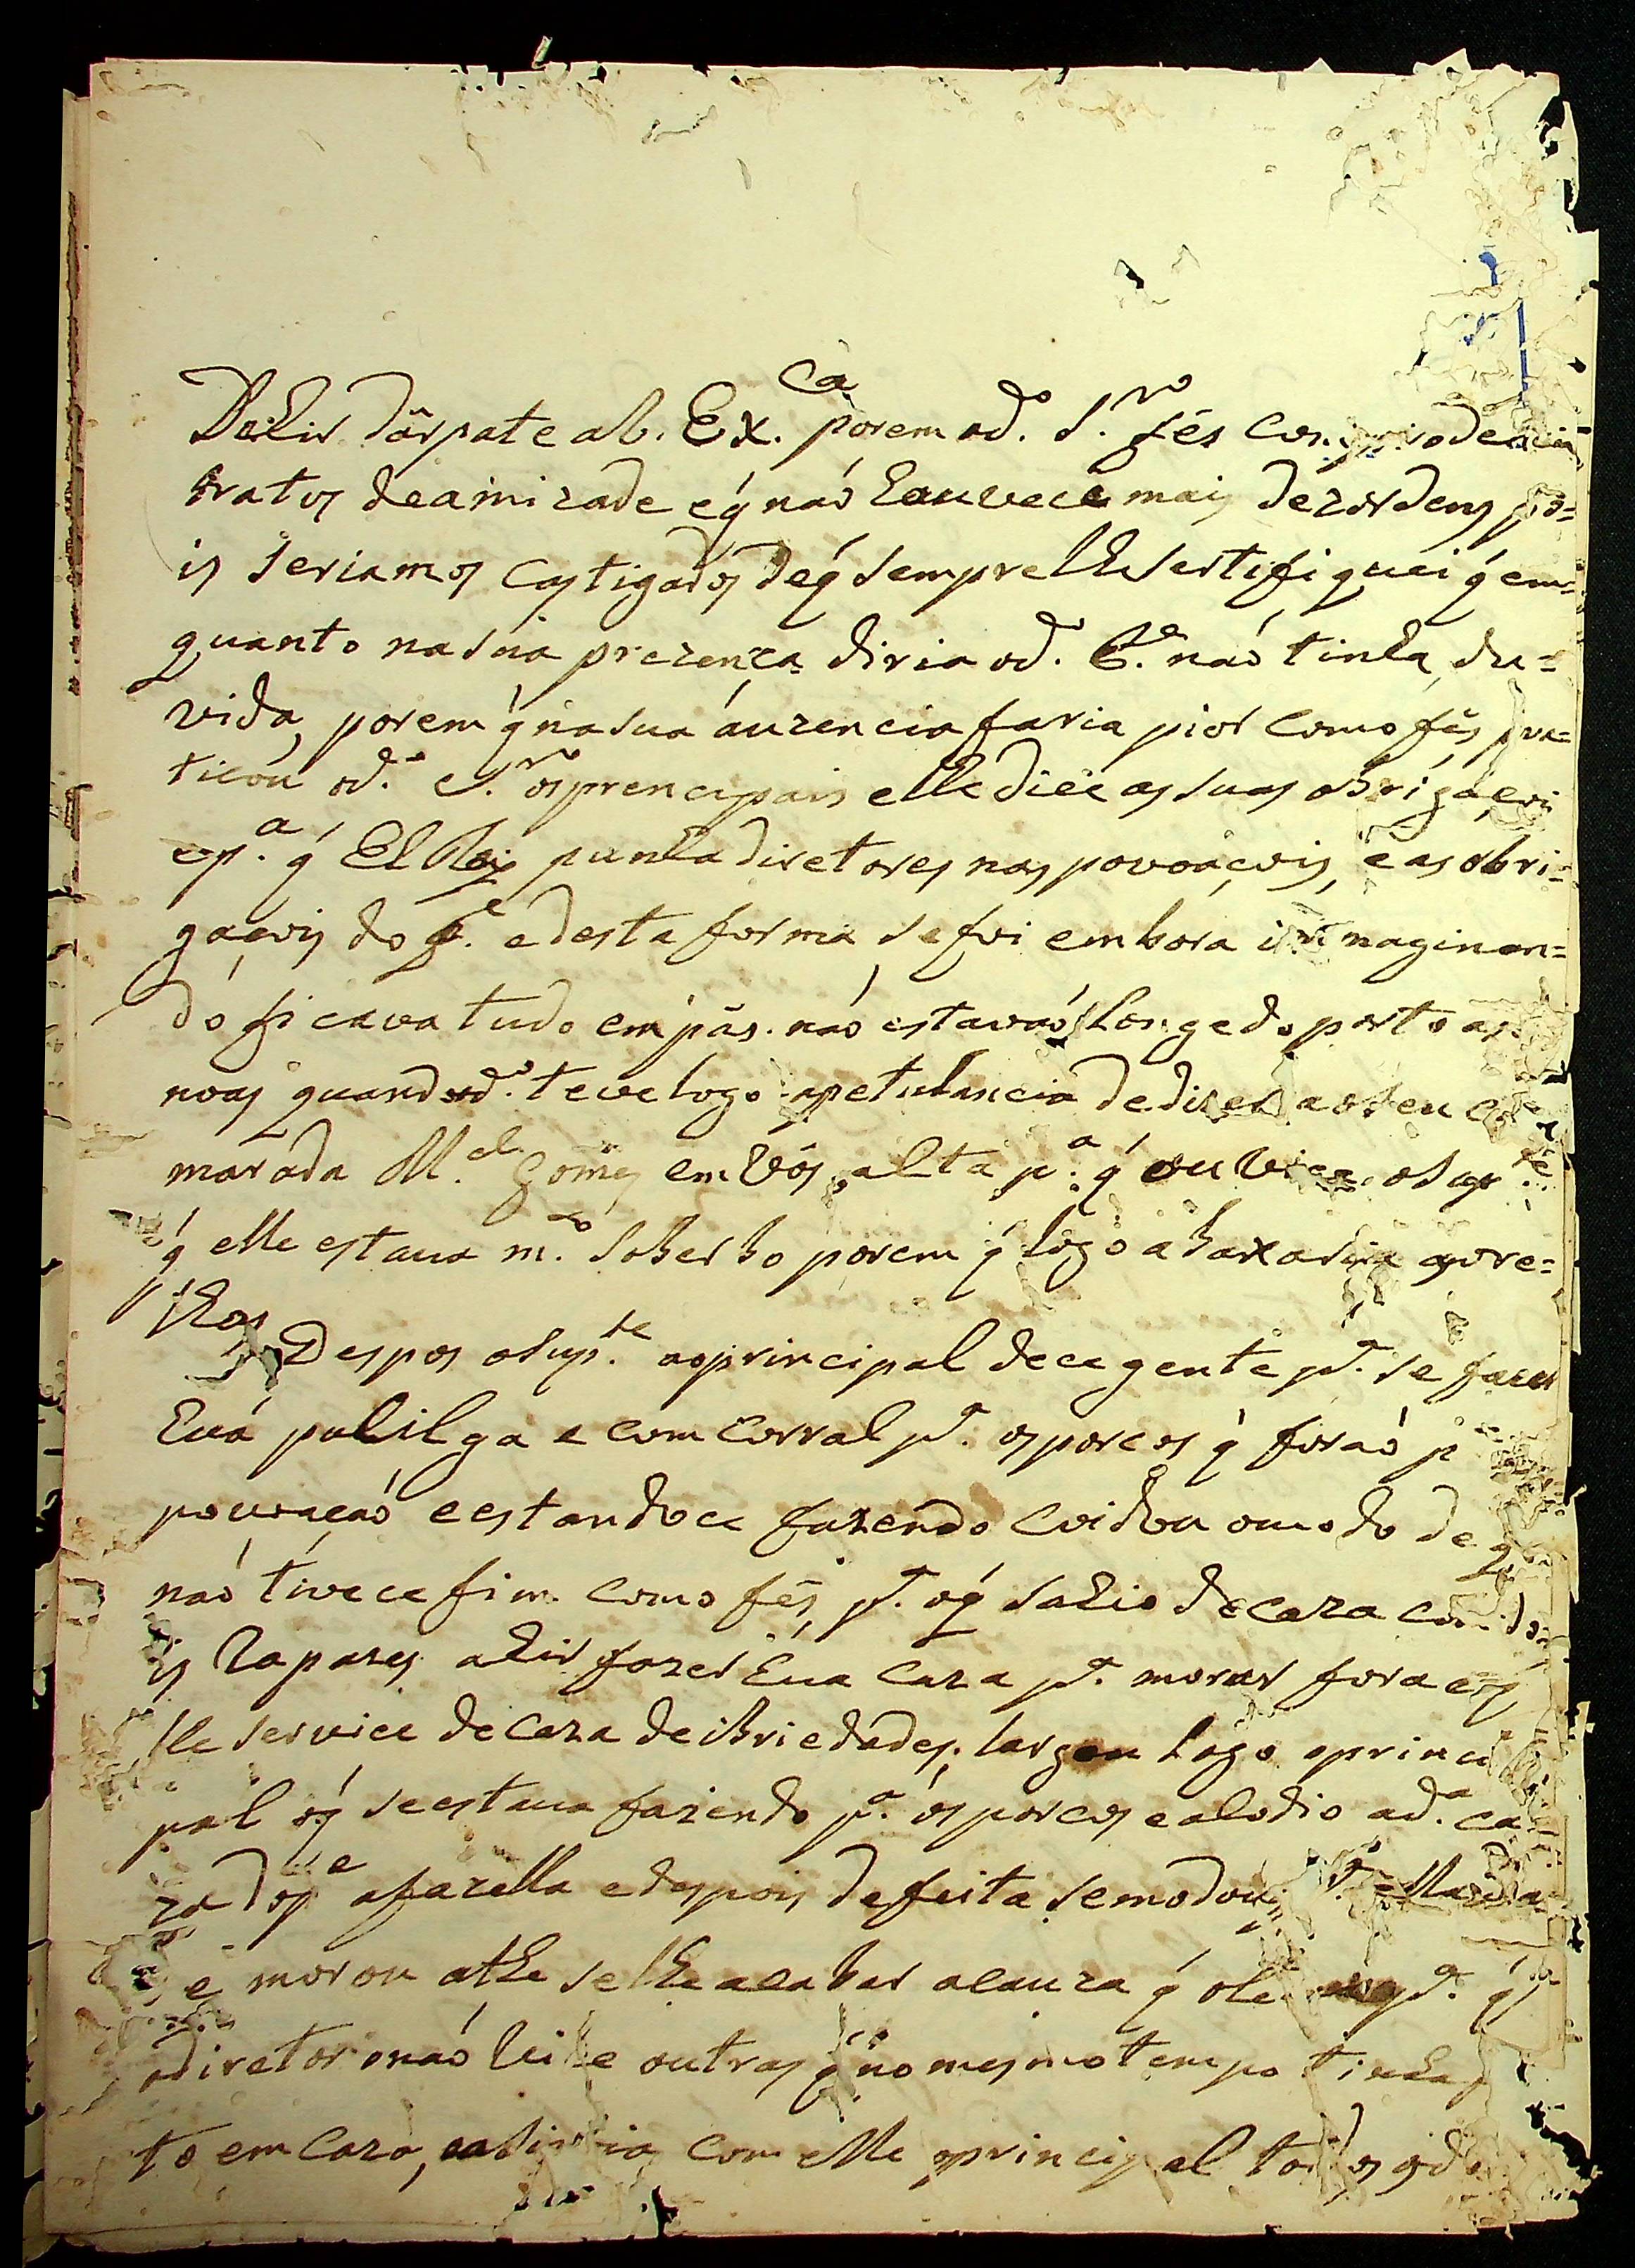 Dehir dár parte a V. Ex.ca porem o d.o S.r fés com prodencia
tratos de amizade e q́ naó houvece mais dezordens po=
is seriamos Castigados de q́ sempre lhe sertifiquei q́ em=
quanto na sua prezença diria o d.o naó tinha du=
vida, porem q́ na sua auzencia faria pior como fés pra=
ticou o d.o S.r os prencipais elle dice as suas obrigaçois
e p.a q́ El Rey punha diretores nas povoaçois, e as obri=
gaçois do e desta forma se foi embora immaginan=
do ficava tudo em pás. naó estavaó Longe do porto as
noas quando o d.o teve logo a petulancia de dizer ao seu ca
marada M.el Gomes em Vós alta p.a q́ ouvice o sup.te
q́ elle estava m.to soberbo porem q́ logo abaxaria as ore=
lhas
Despos o sup.te ao principal dece gente p.a se fazer
huá e com corral p.a os porcos q́ foraó p
povoaçaó e estandoce fazendo coidou o modo de q́
naó tivece fim como fés, p.a o q́ sahio de caza com do=
is Rapazes a hir fazer huá Caza p.a morar fora e
lhe service de Caza de ibriedades. largou logo o princi
pal o q́ se estava fazendo p.a os porcos e alodio a d.a ca=
za a fazella e despois de feita se modou
e morou athe se lhe acabar a cauza q́ p.a q́
o diretor o naó e outras q́ no mesmo tempo tinha
to em Caza, com elle principal todos os d